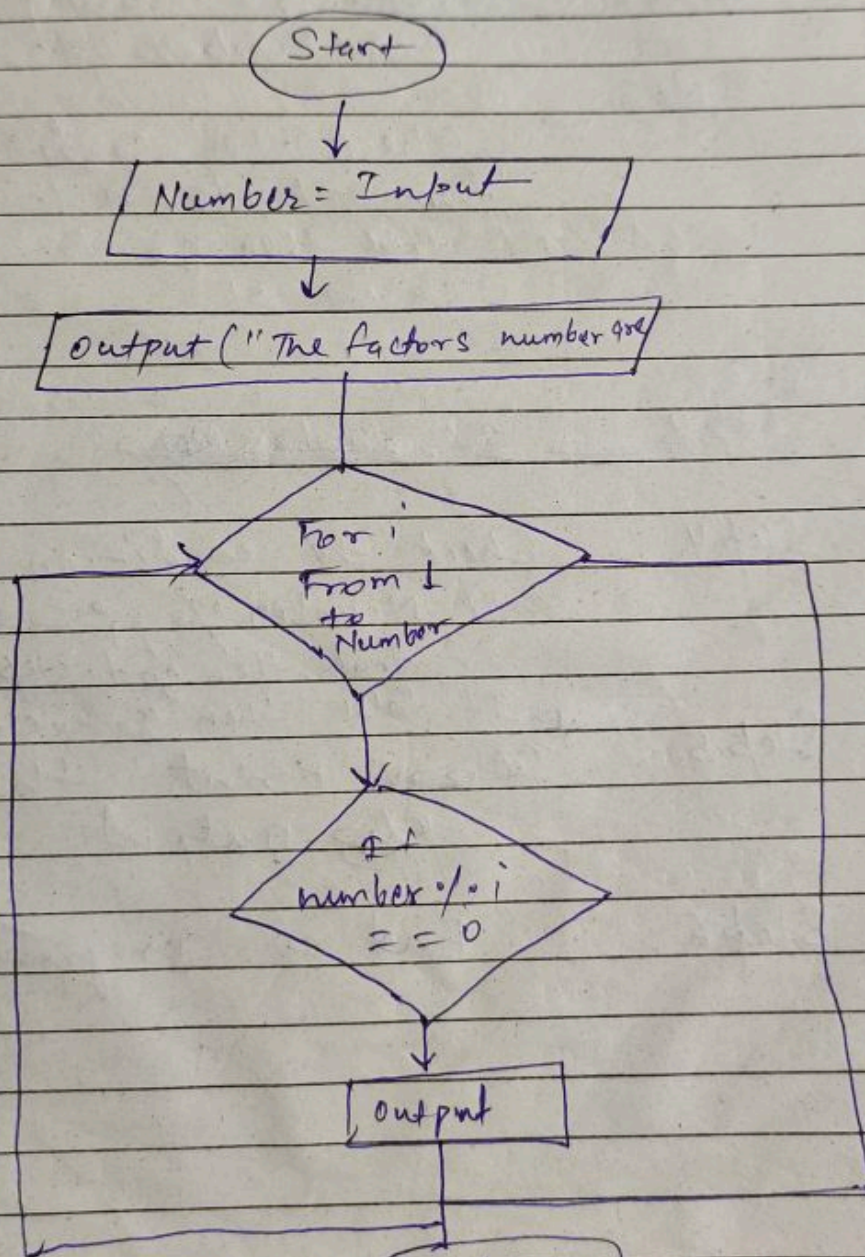 Start
Number = Input
Output ("The factors number are
For i
From 1
to
Number
If
number % i
= = 0
Output